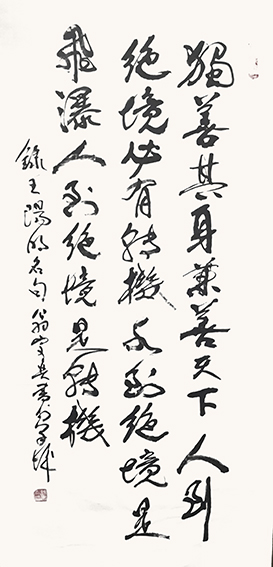 獨善其身兼善天下 人到
絕境必有轉機水到絕境是
飛瀑人到絕境是轉機
錄王陽明名句 翁